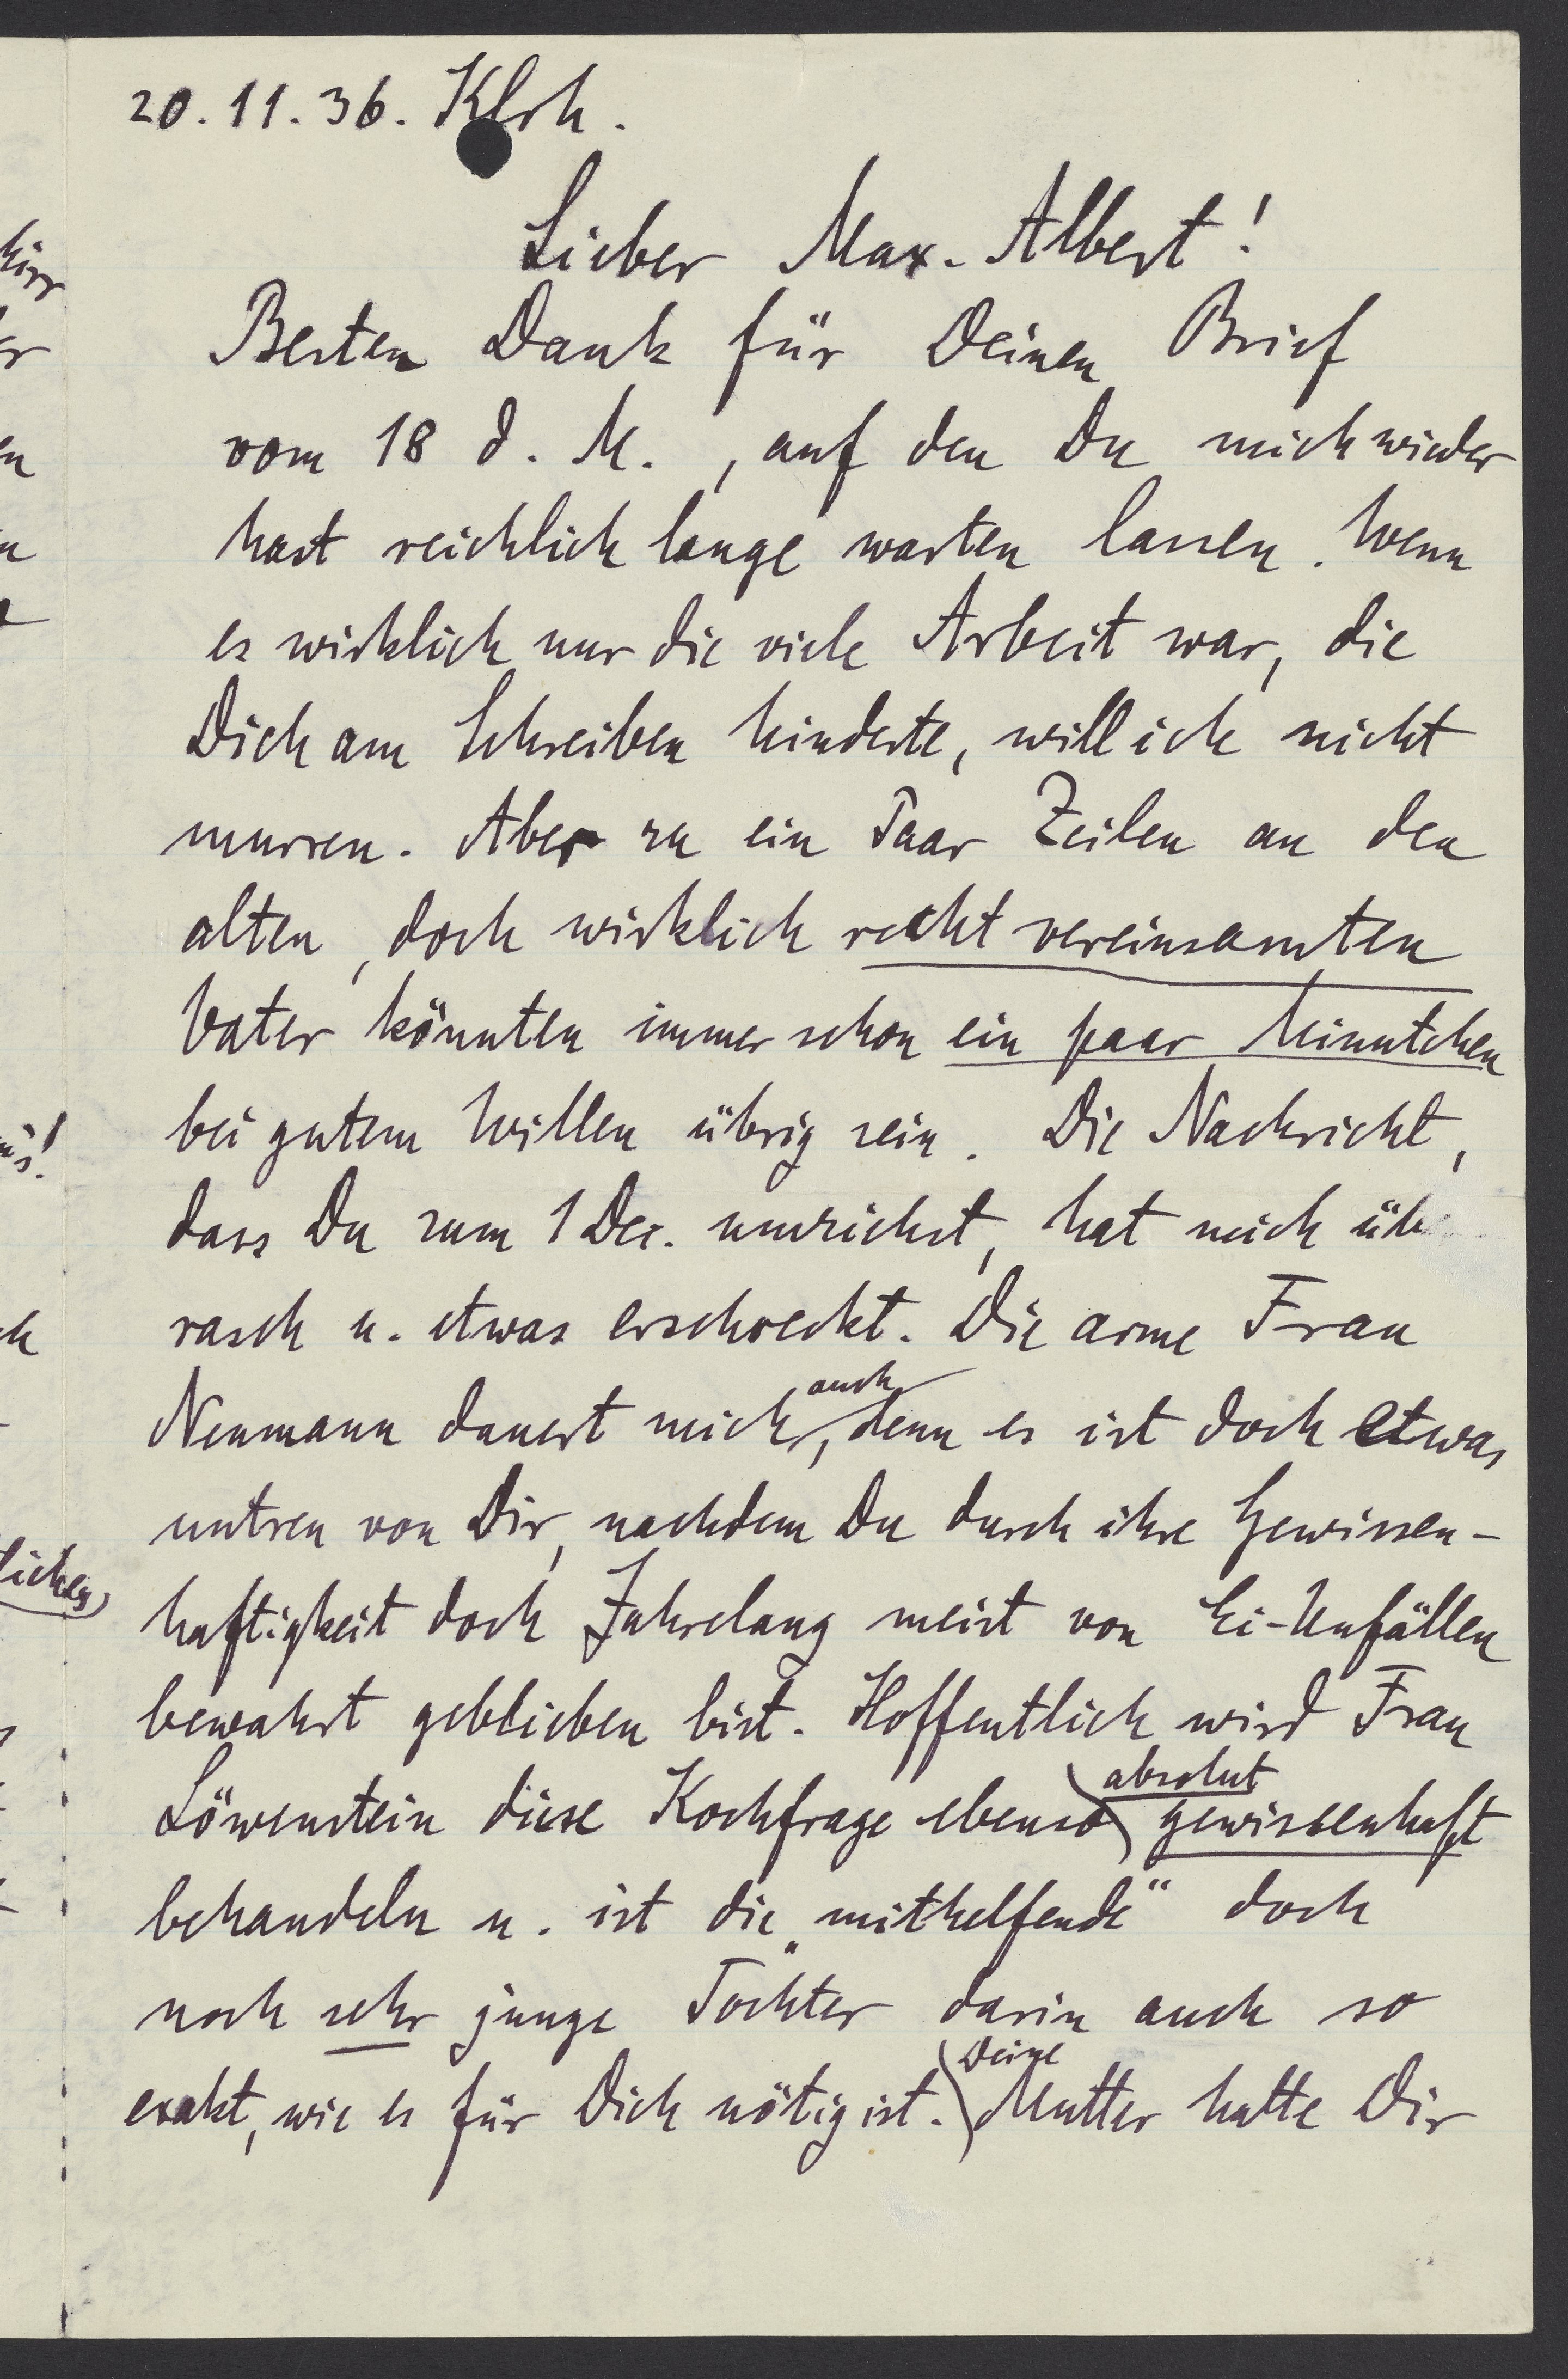 20.11.36. Klrh.
Lieber Max-Albert!
Besten Dank für Deinen Brief
vom 18 d. M., auf den Du mich wieder
hast reichlich lange warten lassen. Wenn
es wirklich nur die viele Arbeit war, die
Dich am Schreiben hinderte, will ich nicht
murren. Aber zu ein Paar Zeilen an den
alten, doch wirklich recht vereinsamten
Vater könnten immer schon ein paar Minutchen
bei gutem Willen übrig sein. Die Nachricht,
dass Du zum 1 Dec. umziehst, hat mich übe
rasch u. etwas erschreckt. Die arme Frau
Neumann dauert mich auch, denn es ist doch etwas
untreu von Dir, nachdem Du durch ihre Gewissen-
haftigkeit doch Jahrelang meist von Ei-Unfällen
bewahrt geblieben bist. Hoffentlich wird Frau
Löwenstein diese Kochfrage ebenso absolut gewissenhaft
behandeln u. ist die „mithelfende“ doch
noch sehr junge Tochter darin auch so
exakt, wie es für Dich nötig ist. Deine Mutter hatte Dir